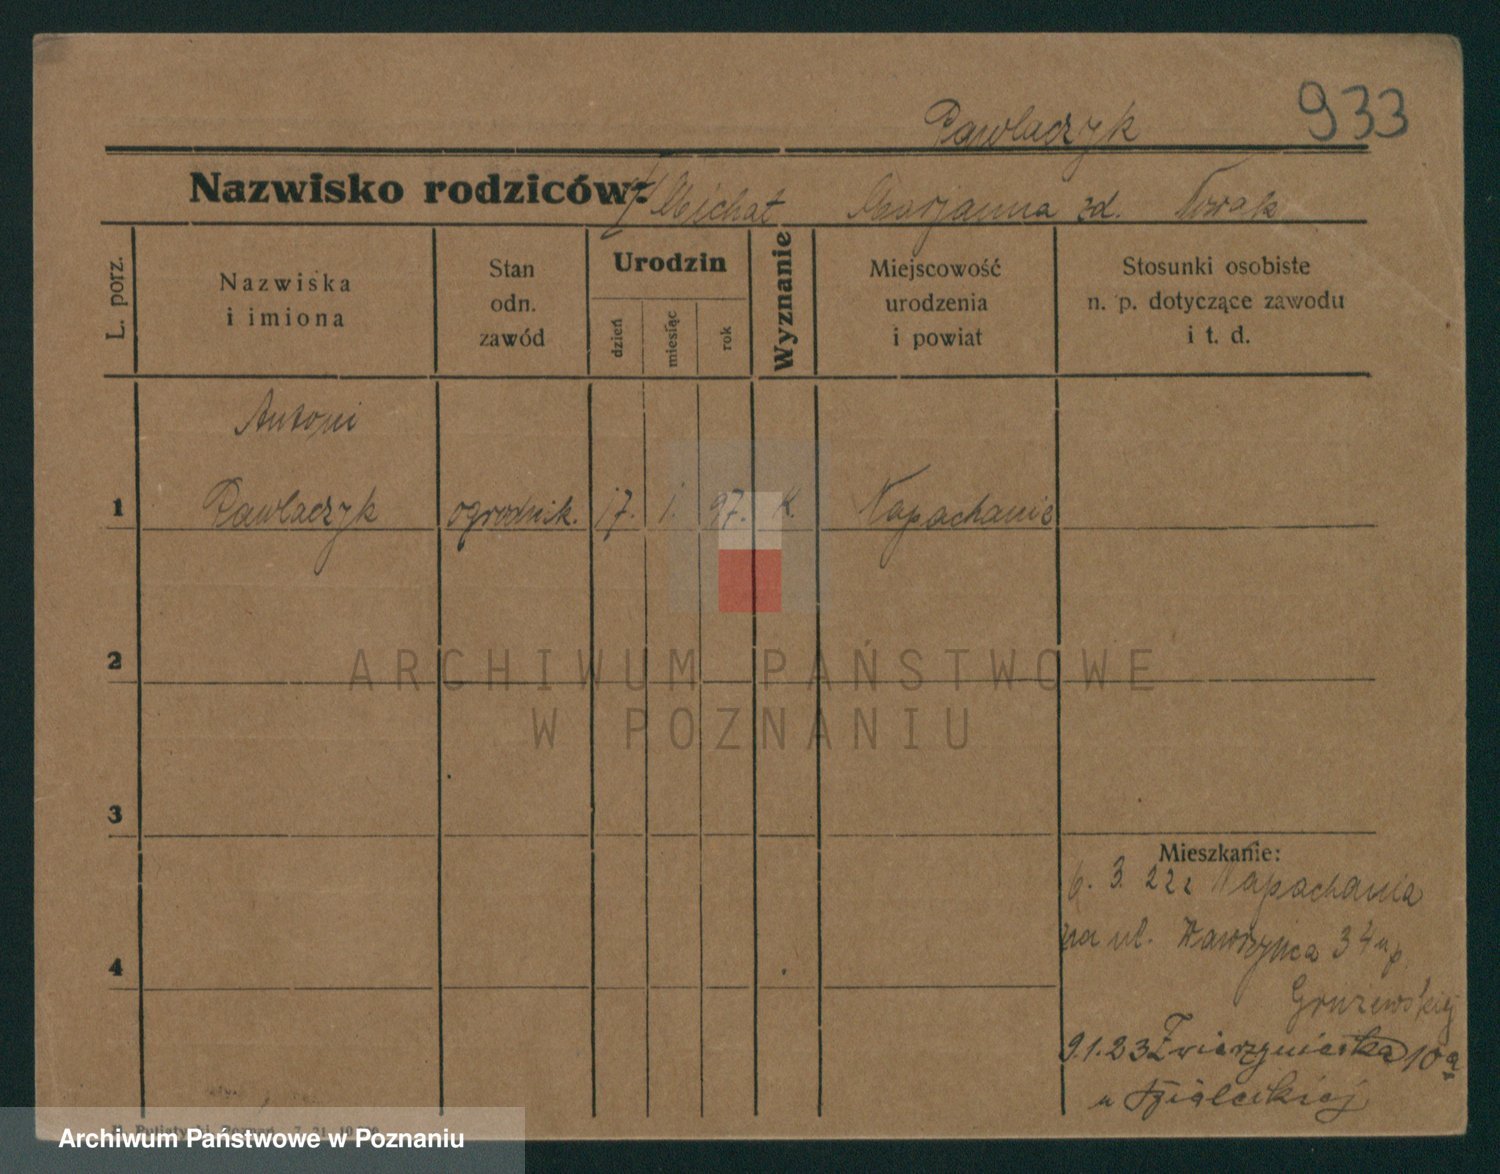 933
Pawlaczyk
Nazwisko rodziców: Michał Marjanna zd. Nowak
L. porz.
Nazwiska
i imiona
Stan
odn.
zawód
Urodzin
dzień
miesiąc
rok
Wyznanie
Miejscowość
urodzenia
i powiat
Stosunki osobiste
n. p. dotyczące zawodu
i t. d.
Antoni
1 Pawlaczyk ogrodnik. 17. 1. 97. k. Napachanie
2
ARCHIWUM PAŃSTWOWE
W POZNANIU
3
Mieszkanie:
6. 3. 22 z Napachania
na ul. Wawrzyńca 34 u p.
4
Gruzewskiej
9.1.23 Zwierzyniecka 10a
u
Poznań
Archiwum Państwowe w Poznaniu